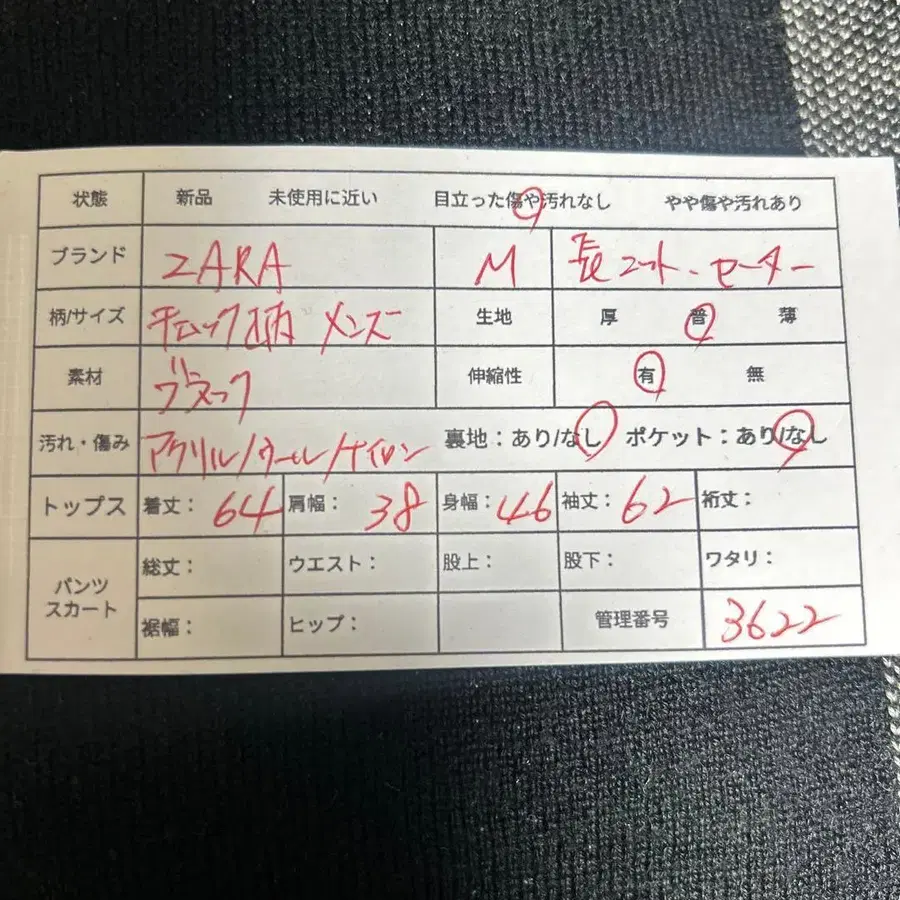 状態 新品 未使用に近い 目立った傷や汚れなし やや傷や汚れあり
ブランド ZARA M 長ニット・セーター
柄/サイズ チェック柄 メンズ 生地 厚 普 薄
素材 ブラック 伸縮性 有 無
汚れ・傷み アクリル/ウール/ナイロン 裏地：あり/なし ポケット：あり/なし
トップス 着丈：64 肩幅：38 身幅：46 袖丈：62 裄丈：
パンツ 総丈： ウエスト： 股上： 股下： ワタリ：
スカート 裾幅： ヒップ： 管理番号 3622